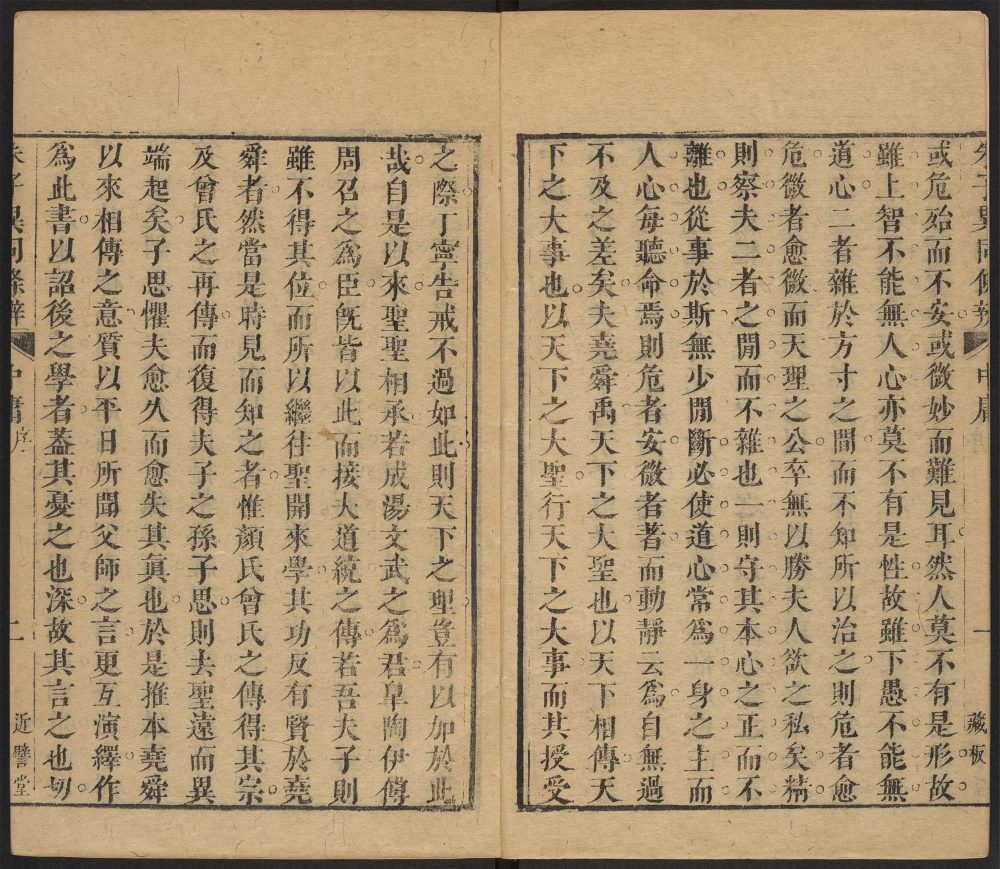 朱子異同條辨 中庸 一 藏板
或危殆而不安或微妙而難見耳然人莫不有是形故
雖上智不能無人心亦莫不有是性故雖下愚不能無
道心二者雜於方寸之間而不知所以治之則危者愈
危微者愈微而天理之公卒無以勝夫人欲之私矣精
則察夫二者之閒而不雜也一則守其本心之正而不
離也從事於斯無少閒斷必使道心常爲一身之主而
人心每聽命焉則危者安微者著而動靜云爲自無過
不及之差矣夫堯舜禹天下之大聖也以天下相傳天
下之大事也以天下之大聖行天下之大事而其授受
之際丁寧告戒不過如此則天下之理豈有以加於此
哉自是以來聖聖相承若成湯文武之爲君臯陶伊傅
周召之爲臣旣皆以此而接夫道統之傳若吾夫子則
雖不得其位而所以繼往聖開來學其功反有賢於堯
舜者然當是時見而知之者惟顏氏曾氏之傳得其宗
及曾氏之再傳而復得夫子之孫子思則去聖遠而異
端起矣子思懼夫愈久而愈失其眞也於是推本堯舜
以來相傳之意質以平日所聞父師之言更互演繹作
爲此書以詔後之學者葢其憂之也深故其言之也切
朱子異同條辨 中庸序 二 近譬堂